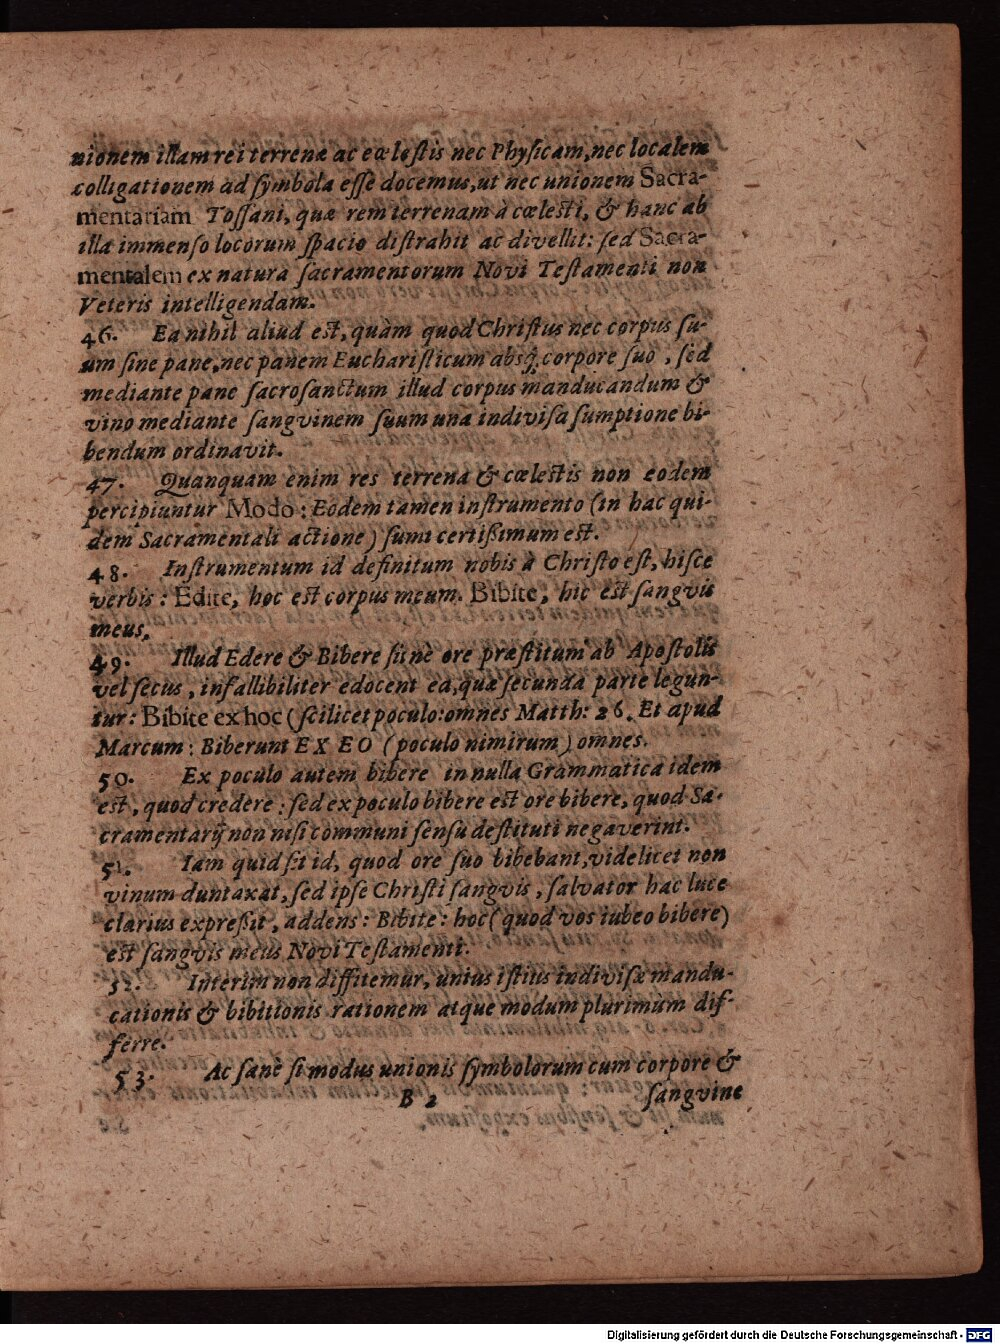 nionem illam rei terrenæ ac cœlestis nec Physicam, nec localem
colligationem ad symbola esse docemus, ut nec unionem Sacra-
mentariam Tossani, quæ rem terrenam à cœlesti, & hanc ab
illa immenso locorum spacio distrahit ac divellit: sed Sacra-
mentalem ex natura sacramentorum Novi Testamenti non
Veteris intelligendam.
46. Ea nihil aliud est, quàm quod Christus nec corpus su-
um sine pane, nec panem Eucharisticum absq; corpore suo, sed
mediante pane sacrosanctum illud corpus manducandum &
vino mediante sangvinem suum una indivisa sumptione bi-
bendum ordinavit.
47. Quanquam enim res terrena & cœlestis non eodem
percipiuntur Modo: Eodem tamen instrumento (in hac qui-
dem Sacramentali actione) sumi certißimum est.
48. Instrumentum id definitum nobis à Christo est, hisce
verbis: Edite, hoc est corpus meum. Bibite, hic est sangvis
meus.
49. Illud Edere & Bibere sitnè ore præstitum ab Apostolis
vel secus, infallibiliter edocent ea, quæ secunda parte legun-
tur: Bibite ex hoc (scilicet poculo: omnes Matth: 26. Et apud
Marcum: Biberunt EX EO (poculo nimirum) omnes.
50. Ex poculo autem bibere in nulla Grammatica idem
est, quod credere: sed ex poculo bibere est ore bibere, quod Sa-
cramentarij non nisi communi sensu destituti negaverint.
51. Iam quid sit id, quod ore suo bibebant, videlicet non
vinum duntaxat, sed ipse Christi sangvis, salvator hac luce
clarius expreßit, addens: Bibite: hoc (quod vos iubeo bibere)
est sangvis meus Novi Testamenti.
52. Interim non diffitemur, unius istius indivisæ mandu-
cationis & bibitionis rationem atque modum plurimùm dif-
ferre.
53. Ac sanè si modus unionis symbolorum cum corpore &
B 2 sangvine
Digitalisierung gefördert durch die Deutsche Forschungsgemeinschaft - DFG